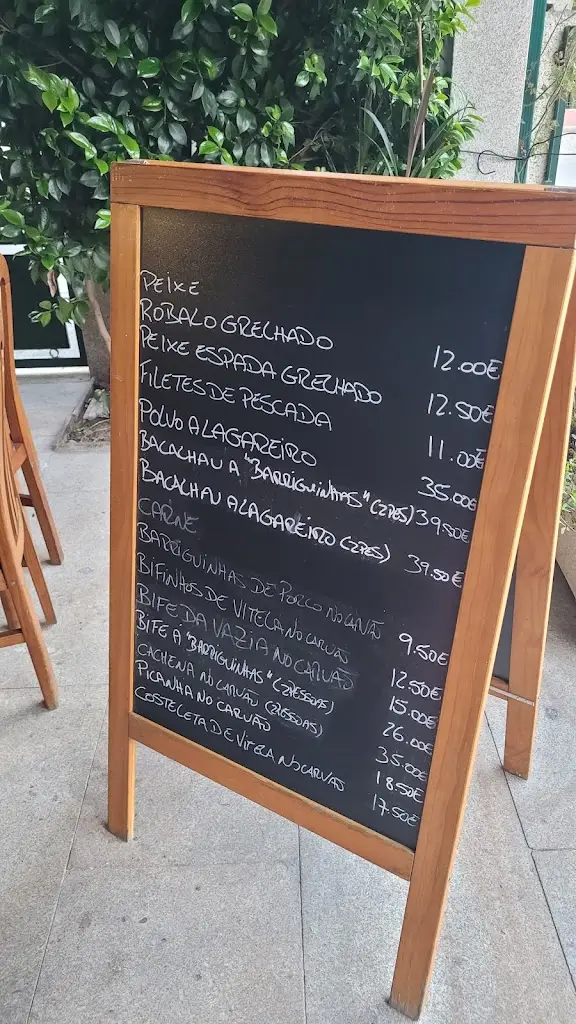 PEIXE
ROBALO GRELHADO 12.00€
PEIXE ESPADA GRELHADO 12.50€
FILETES DE PESCADA 11.00€
POLVO A LAGAREIRO 35.00€
BACALHAU A "BARRIGUINHAS" (2PES) 39.50€
BACALHAU A LAGAREIRO (2PES) 39.50€
CARNE
BARRIGUINHAS DE PORCO NO CARVÃO 9.50€
BIFINHOS DE VITELA NO CARVÃO 12.50€
BIFE DA VAZIA NO CARVÃO 15.00€
BIFE A "BARRIGUINHAS" (2PESSOAS) 26.00€
CACHENA NO CARVÃO (2PESSOAS) 35.00€
PICANHA NO CARVÃO 18.50€
COSTELETA DE VITELA NO CARVÃO 17.50€